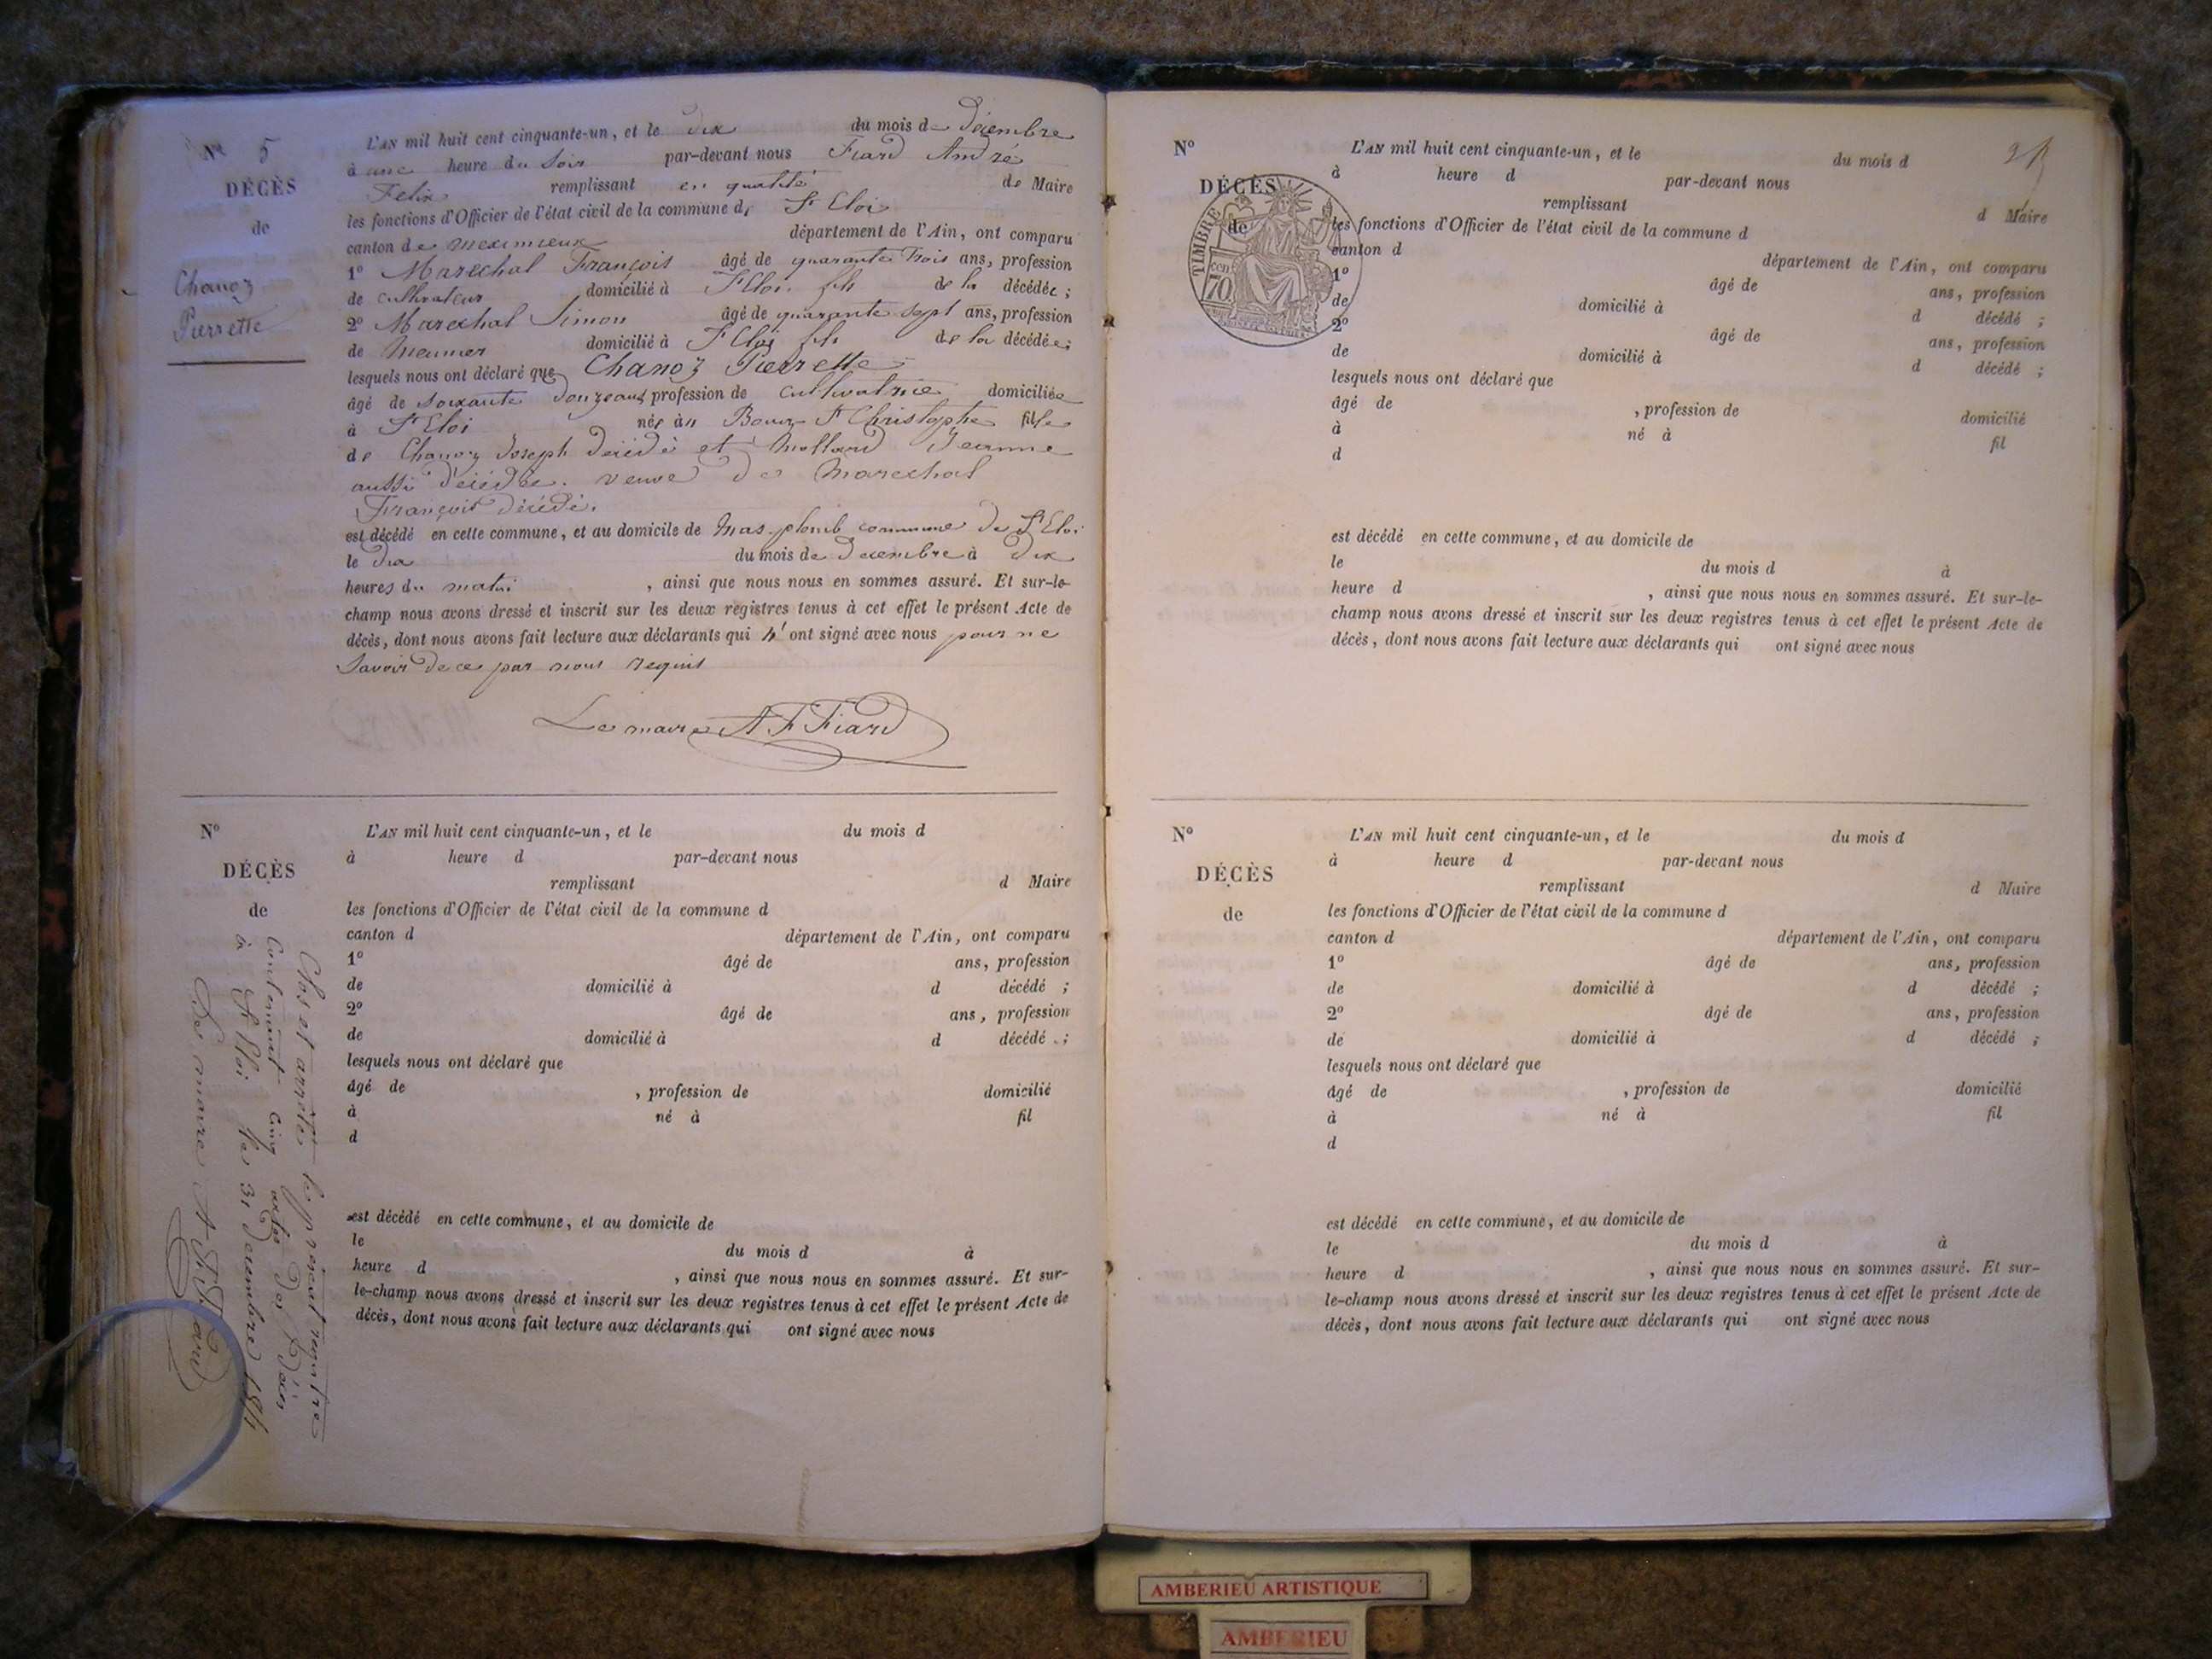 Nº 5
DÉCÈS
de
Chanoz
Pierrette
L'AN mil huit cent cinquante-un, et le dix du mois de Décembre
à une heure du Soir par-devant nous Fiard André
Felix remplissant en qualité de Maire
les fonctions d'Officier de l'état civil de la commune d, St Eloi
canton de meximieux département de l'Ain, ont comparu
1º Marechal François âgé de quarante trois ans, profession
de cultivateur domicilié à St Eloi fils de la décédée ;
2º Marechal Simon âgé de quarante sept ans, profession
de meunier domicilié à St Eloi fils de la décédée ;
lesquels nous ont déclaré que Chanoz Pierrette
âgé de soixante douze ans profession de cultivatrice domiciliée
à St Eloi née à Bourg St Christophe fille
de Chanoz Joseph décédé et Mollard Jeanne
aussi décédée. veuve de Marechal
François décédé.
est décédé en cette commune, et au domicile de mas-plomb commune de St Eloi
le dix du mois de Decembre à dix
heures du matin , ainsi que nous nous en sommes assuré. Et sur-le-
champ nous avons dressé et inscrit sur les deux registres tenus à cet effet le présent Acte de
décès, dont nous avons fait lecture aux déclarants qui n'ont signé avec nous pour ne
Savoir de ce par nous requis
Le maire A F Fiard
Nº
DÉCÈS
de
L'AN mil huit cent cinquante-un, et le du mois d
à heure d par-devant nous
remplissant d Maire
les fonctions d'Officier de l'état civil de la commune d
canton d département de l'Ain, ont comparu
1º âgé de ans, profession
de domicilié à d décédé ;
2º âgé de ans, profession
de domicilié à d décédé ;
lesquels nous ont déclaré que
âgé de , profession de domicilié
à né à fil
d
est décédé en cette commune, et au domicile de
le du mois d à
heure d , ainsi que nous nous en sommes assuré. Et sur-
le-champ nous avons dressé et inscrit sur les deux registres tenus à cet effet le présent Acte de
décès, dont nous avons fait lecture aux déclarants qui ont signé avec nous
Clos et arrêté le présent registre
Contenant cinq actes de Décès
à St Eloi le 31 Decembre 1851
Le maire A F Fiard
Nº
DÉCÈS
de
TIMBRE
70
L'AN mil huit cent cinquante-un, et le du mois d
à heure d par-devant nous
remplissant d Maire
les fonctions d'Officier de l'état civil de la commune d
canton d département de l'Ain, ont comparu
1º âgé de ans, profession
de domicilié à d décédé ;
2º âgé de ans, profession
de domicilié à d décédé ;
lesquels nous ont déclaré que
âgé de , profession de domicilié
à né à fil
d
est décédé en cette commune, et au domicile de
le du mois d à
heure d , ainsi que nous nous en sommes assuré. Et sur-le-
champ nous avons dressé et inscrit sur les deux registres tenus à cet effet le présent Acte de
décès, dont nous avons fait lecture aux déclarants qui ont signé avec nous
Nº
DÉCÈS
de
L'AN mil huit cent cinquante-un, et le du mois d
à heure d par-devant nous
remplissant d Maire
les fonctions d'Officier de l'état civil de la commune d
canton d département de l'Ain, ont comparu
1º âgé de ans, profession
de domicilié à d décédé ;
2º âgé de ans, profession
de domicilié à d décédé ;
lesquels nous ont déclaré que
âgé de , profession de domicilié
à né à fil
d
est décédé en cette commune, et au domicile de
le du mois d à
heure d , ainsi que nous nous en sommes assuré. Et sur-
le-champ nous avons dressé et inscrit sur les deux registres tenus à cet effet le présent Acte de
décès, dont nous avons fait lecture aux déclarants qui ont signé avec nous
AMBERIEU ARTISTIQUE
AMBERIEU